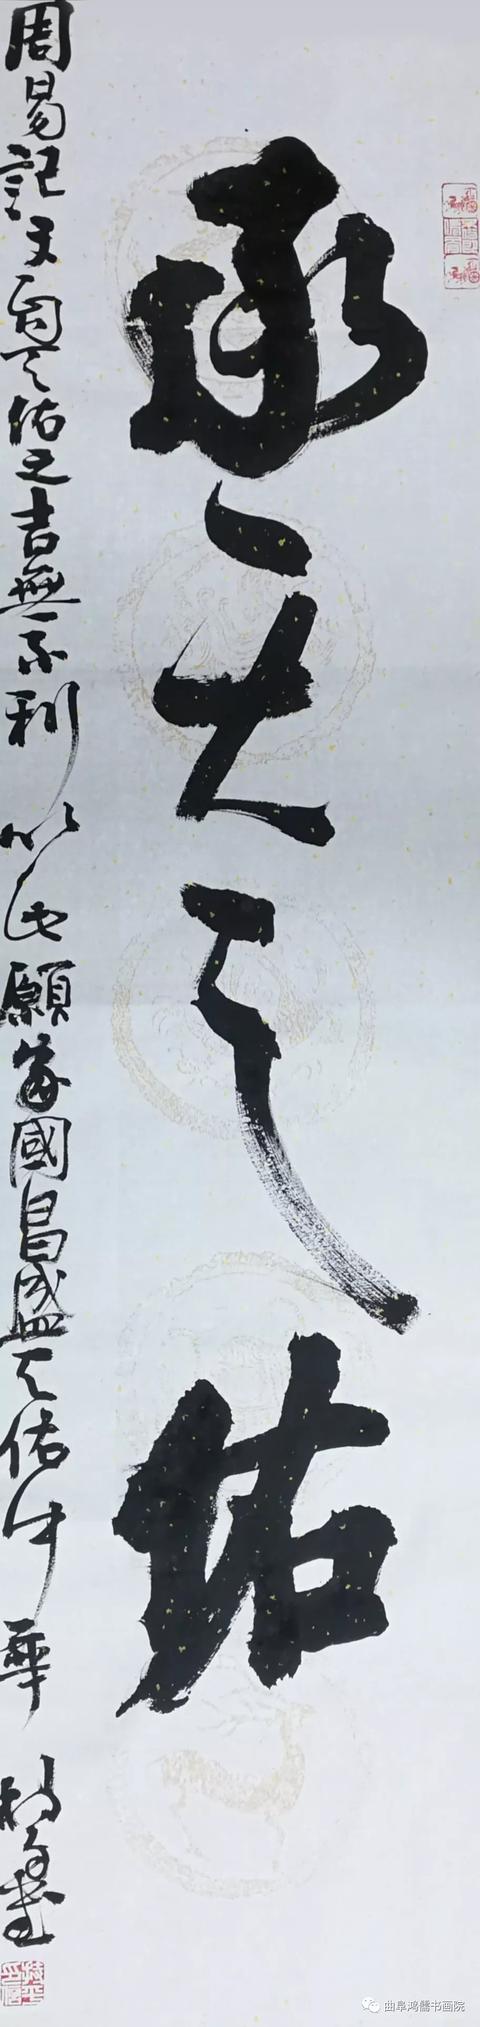 承天之佑
周易記文自天佑之吉無不利以此願家國昌盛天佑中華 書
曲阜鸿儒书画院